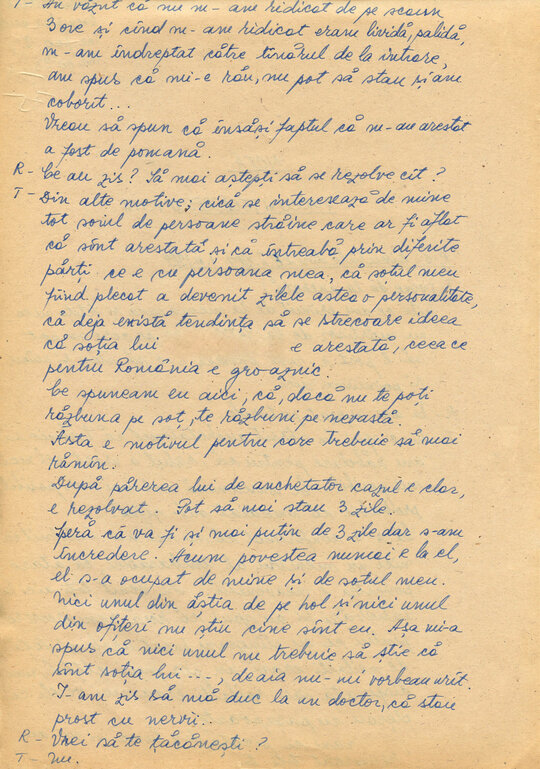 T - Au văzut că nu m-am ridicat de pe scaun
3 ore și cînd m-am ridicat eram lividă, palidă,
m-am îndreptat către tînărul de la intrare,
am spus că mi-e rău, nu pot să stau și am
coborît...
Vreau să spun că însăși faptul că m-au arestat
a fost de pomană.
R - Ce au zis? Să mai aștepți să se rezolve cît?
T - Din alte motive; cică se interesează de mine
tot soiul de persoane străine care ar fi aflat
că sînt arestată și că întreabă prin diferite
părți ce e cu persoana mea, că soțul meu
fiind plecat a devenit zilele astea o personalitate,
că deja există tendința să se strecoare ideea
că soția lui e arestată, ceea ce
pentru România e groaznic.
Ce spuneam eu aici, că, dacă nu te poți
răzbuna pe soț, te răzbuni pe nevastă.
Asta e motivul pentru care trebuie să mai
rămîn.
După părerea lui de anchetator cazul e clar,
e rezolvat. Pot să mai stau 3 zile.
Speră că va fi și mai puțin de 3 zile dar s-am
încredere. Acum povestea numai e la el,
el s-a ocupat de mine și de soțul meu.
Nici unul din ăștia de pe hol și nici unul
din ofițeri nu știu cine sînt eu. Așa mi-a
spus că nici unul nu trebuie să știe că
sînt soția lui ---, de aia nu-mi vorbeau urît.
I-am zis să mă duc la un doctor, că stau
prost cu nervii..
R - Vrei să te țăcănești?
T - Nu.